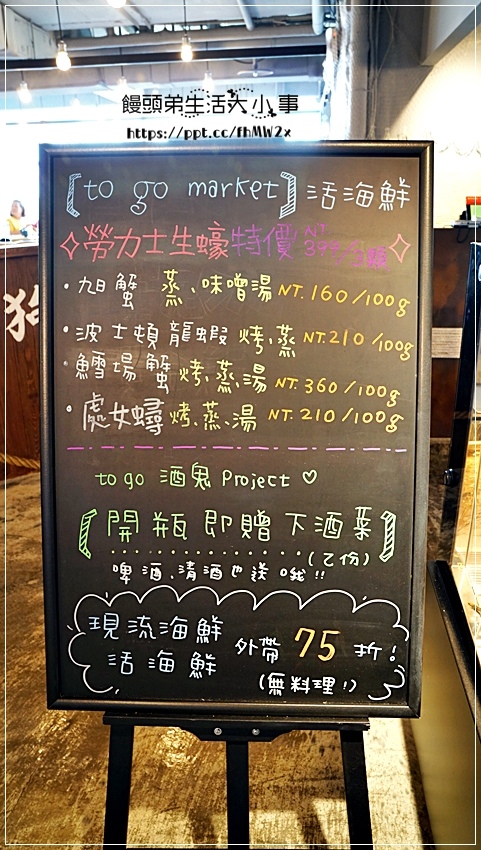 饅頭弟生活大小事
https://ppt.cc/fhMW2x
[to go market] 活海鮮
勞力士生蠔特價 NT
‧旭蟹 蒸、味噌湯 NT.160/100g
‧波士頓龍蝦 烤、蒸 NT.210/100g
‧鱈場蟹 烤、蒸、湯 NT.360/100g
‧處女蟳 烤、蒸、湯 NT.210/100g
to go 酒鬼 Project ♡
[開瓶即贈下酒菜]
(乙份)
啤酒、清酒也送哦!!
現流海鮮
活海鮮 外帶 75 折!
(無料理!)